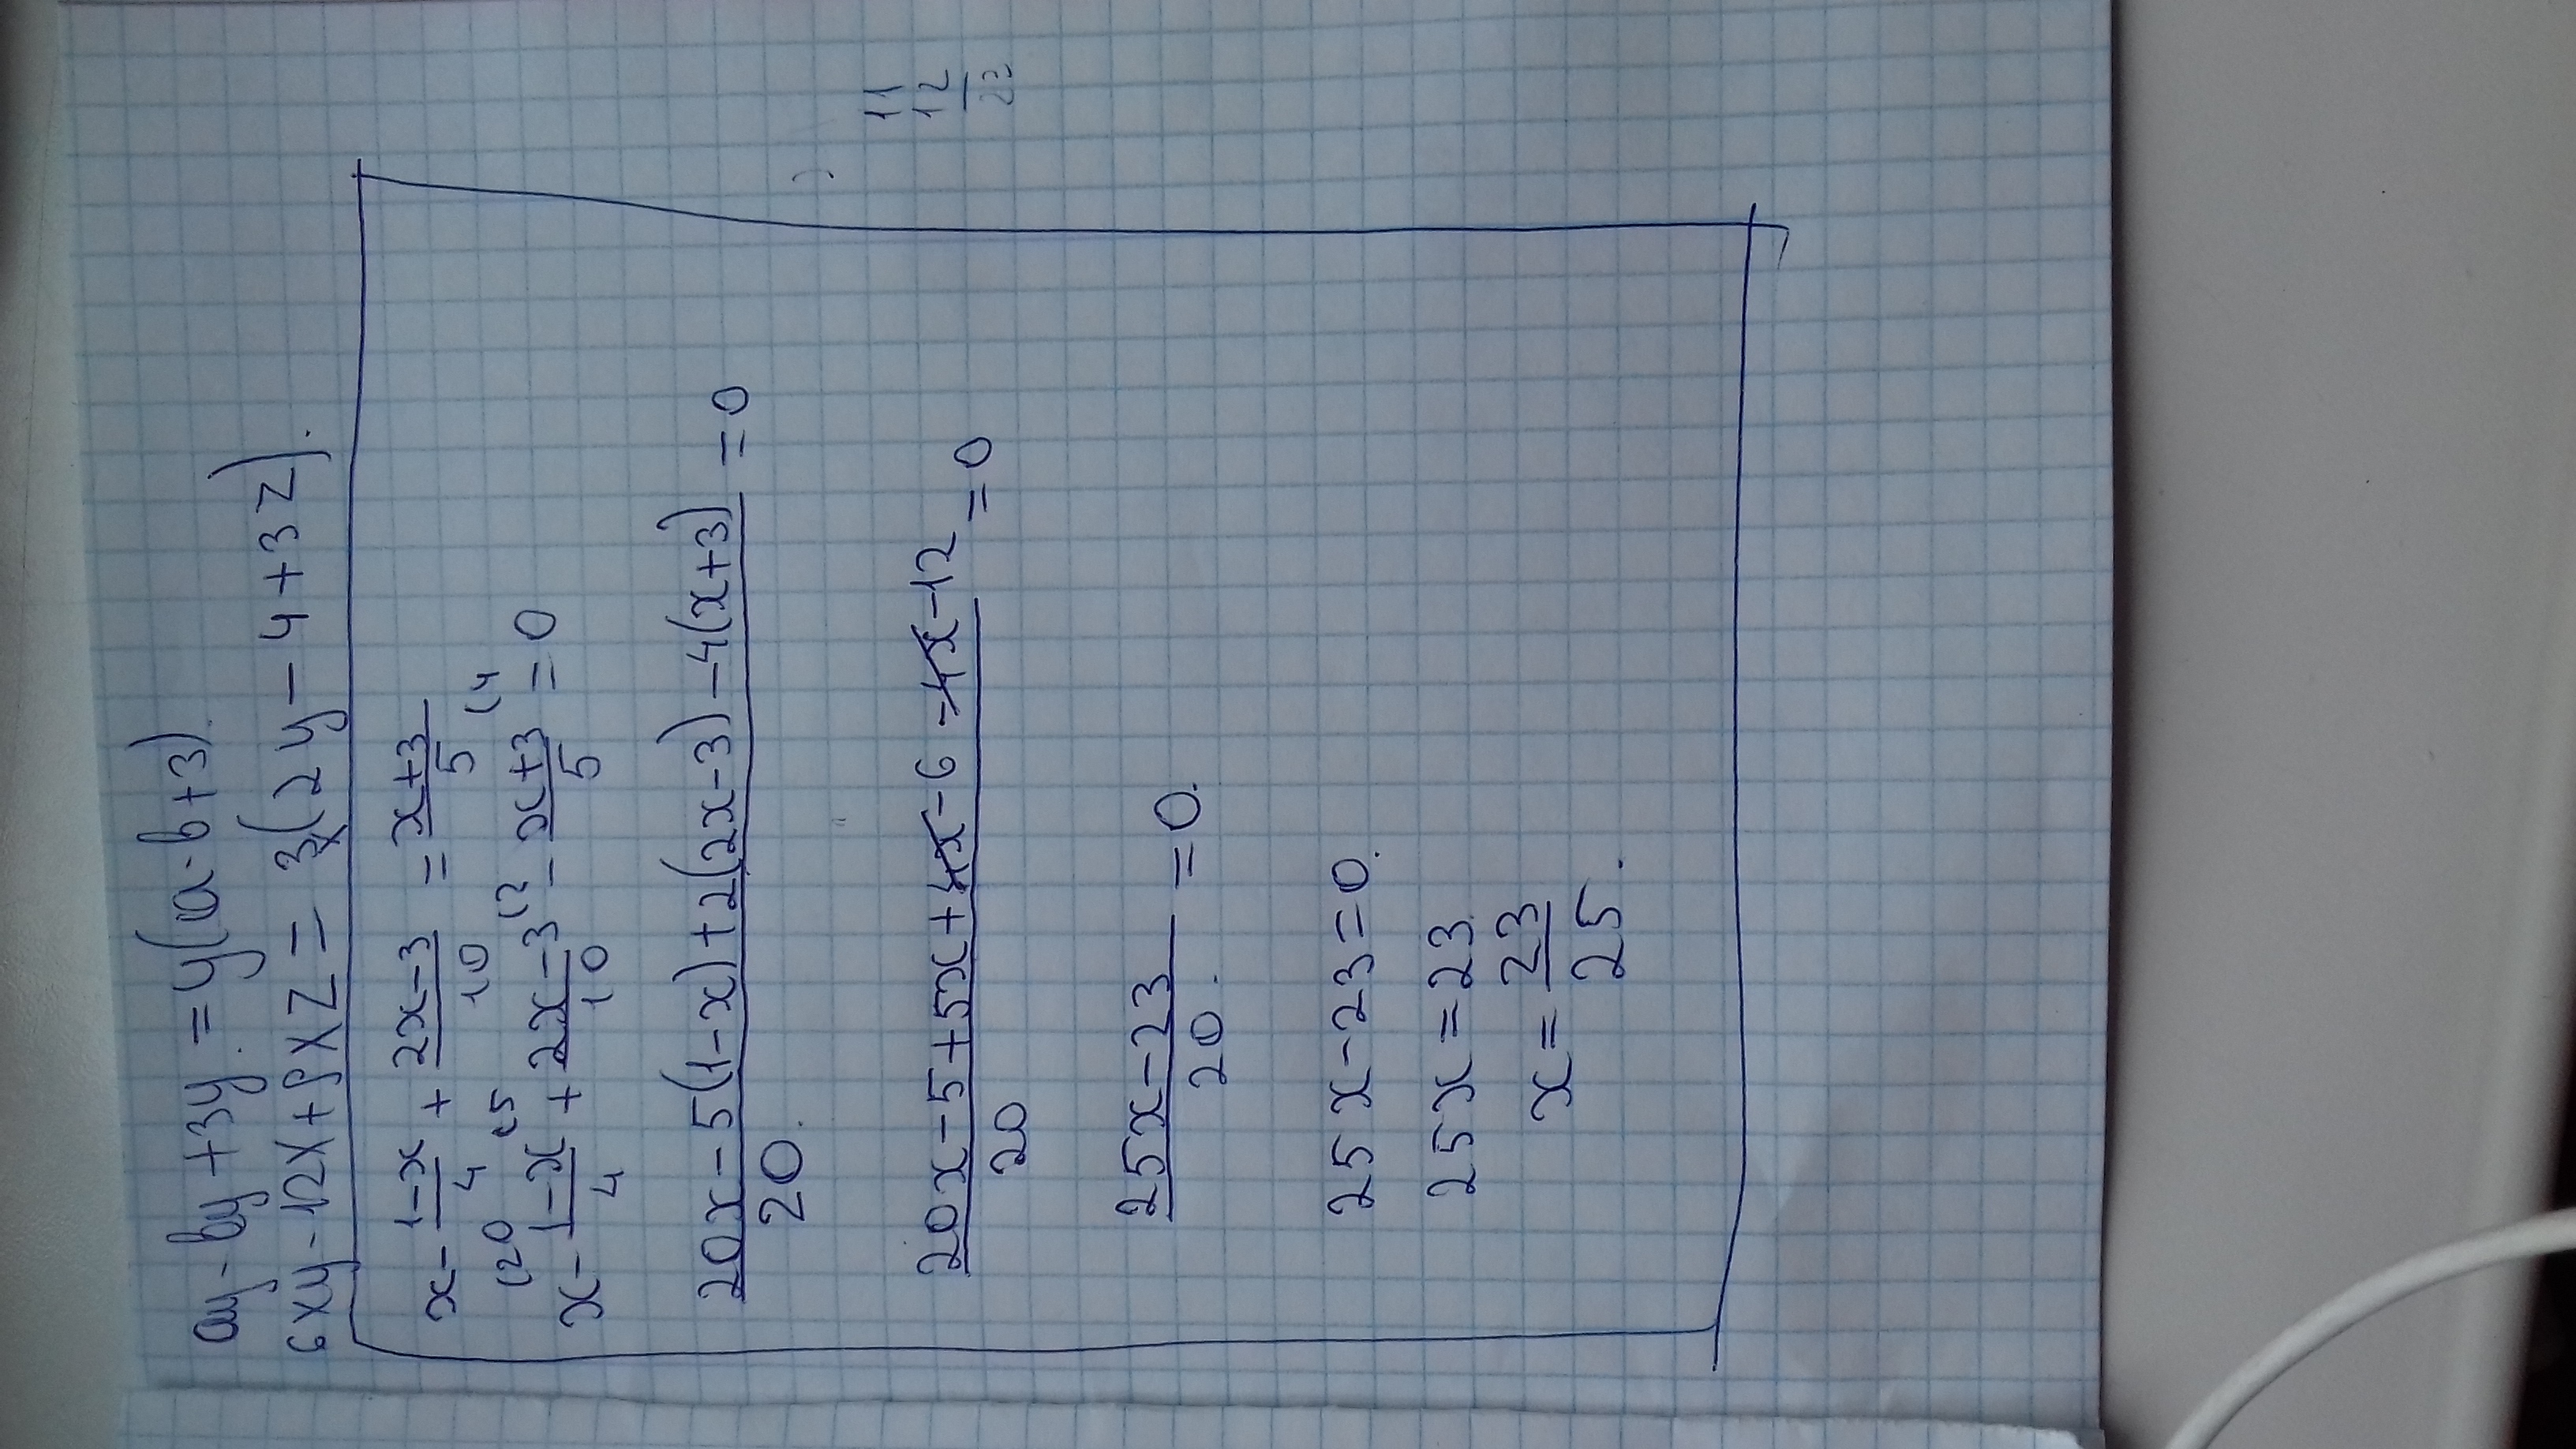 ay - by + 3y. = y(a - b + 3).
6xy - 12x + 9xz = 3x(2y - 4 + 3z).
x - \frac{1-x}{4} + \frac{2x-3}{10} = \frac{x+3}{5}
(20 (5 (2 (4
x - \frac{1-x}{4} + \frac{2x-3}{10} - \frac{x+3}{5} = 0
\frac{20x - 5(1-x) + 2(2x-3) - 4(x+3)}{20.} = 0
\frac{20x - 5 + 5x + 4x - 6 - 4x - 12}{20} = 0
\frac{25x - 23}{20.} = 0.
25x - 23 = 0.
25x = 23
x = \frac{23}{25.}
11
12
23